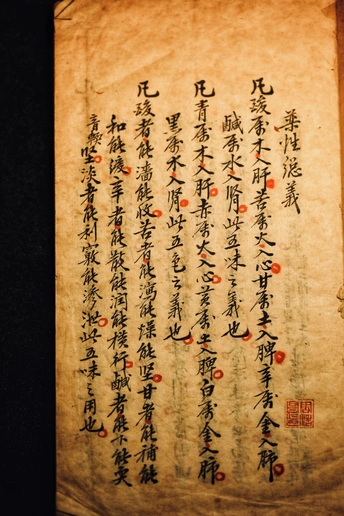 藥性總義
凡酸属木入肝苦属火入心甘属土入脾辛属金入肺
鹹属水入腎此五味之義也
凡青属木入肝赤属火入心黄属土入脾白属金入肺
黑属水入腎此五色之義也
凡酸者能濇能收苦者能瀉能燥能坚甘者能補能
和能缓辛者能散能潤能横行鹹者能下能耎
音軟坚淡者能利竅能滲泄此五味之用也